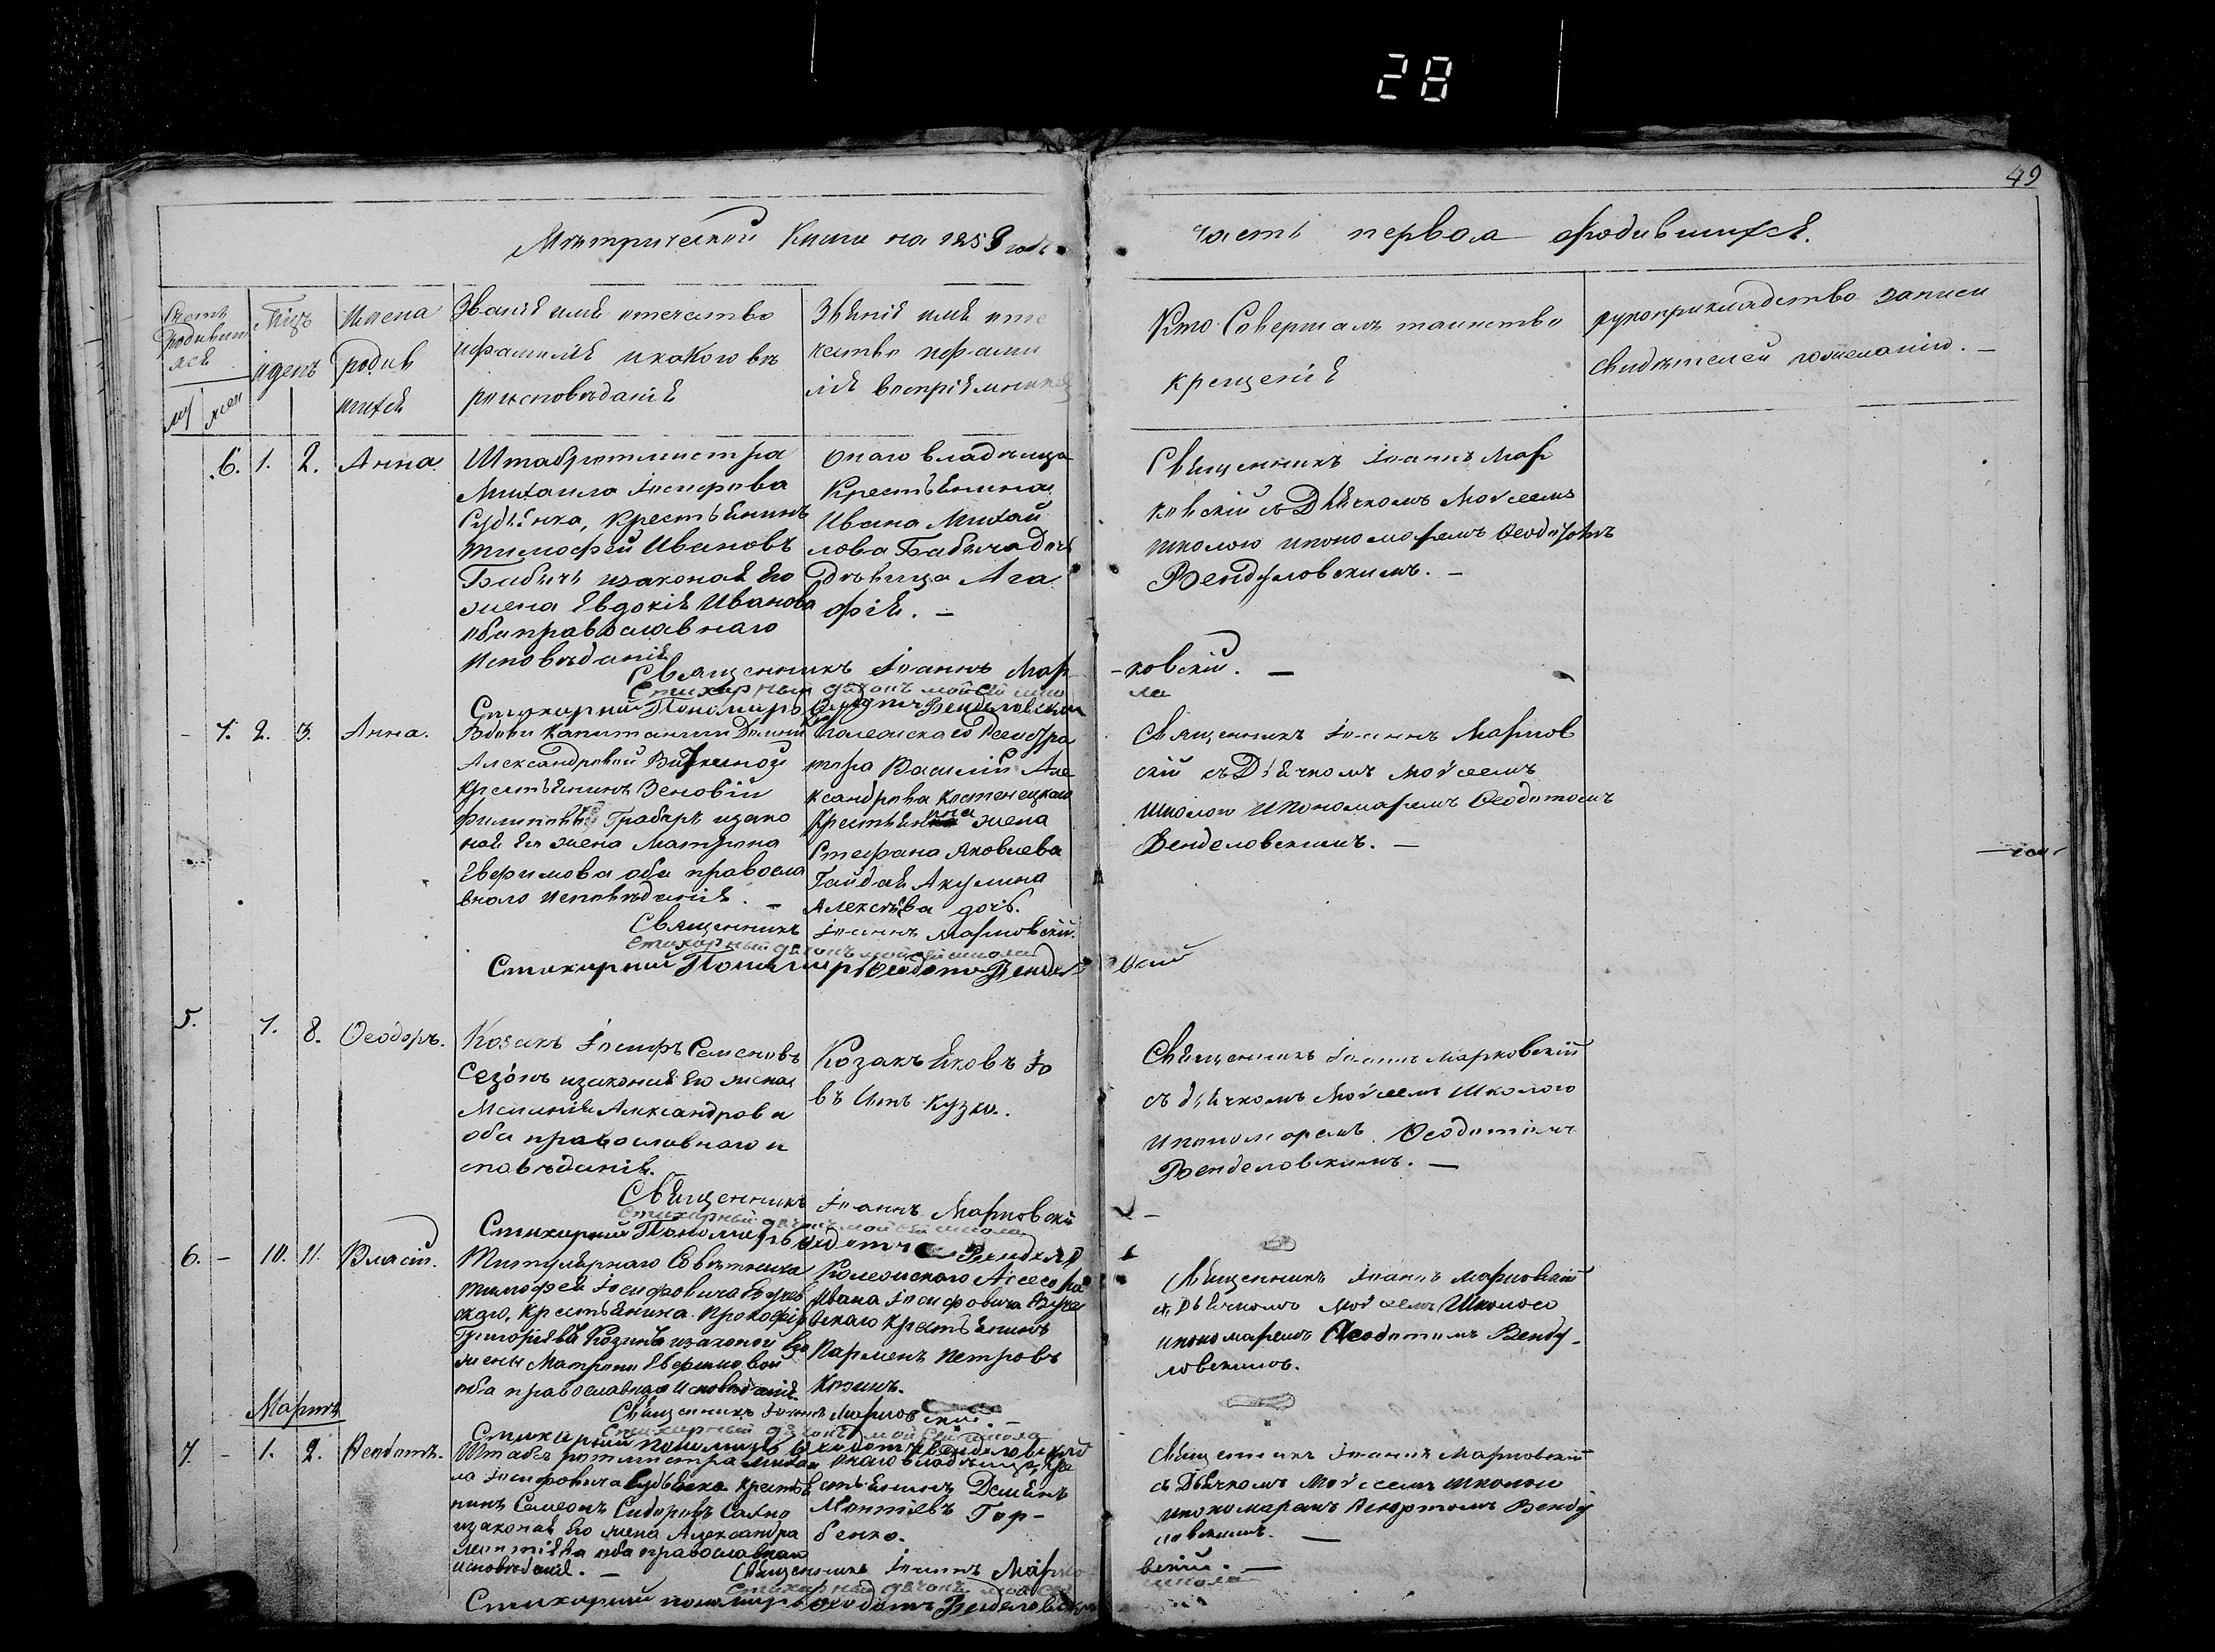 28
49
Метрической Книги на 1858 годъ
часть первая о родившихся.
Счетъ
родивших
ся
муж
жен
Мцъ
и день
Имена
родив
шихся
Званіе имя отчество
и фамилія и какого въ
роисповѣданія
Званіе имя оте
чество и фами
лія воспріемников
Кто Совершалъ таинство
крещенія
рукоприкладство записи
свидѣтелей по желанію. —
6. 1. 2. Анна
Штабротмистра
Михаила Іосифова
Судіенка, Крестьянинъ
Тимофей Ивановъ
Бабичъ и законая его
жена Евдокія Иванова
оба православнаго
исповѣданія
Онаго владѣльца
Крестьянина
Ивана Михай
лова Бабича дочь
дѣвица Ага
фія. —
Священникъ Іоаннъ Мар
ковскій съ Дьячкомъ Мойсеемъ
Школою и пономаремъ Феодотомъ
Венделовскимъ. —
Священникъ Іоаннъ Мар
-ковскій. —
Стихарный дьячокъ Мойсей Шко
ла
Стихарный Пономарь Феодотъ Венделовский
- 7. 2. 3. Анна.
Вдовы Капитанши
Александровой
Крестьянинъ Зеновій
Филиповъ Грабарь и зако
ная его жена Матрона
Евфимова оба правосла
внаго исповѣданія. —
Колежскаго Регистра
тора Василія Але
ксандрова Костенецкаго
Крестьянина жена
Стефана Яковлева
Гайдая Акулина
Алексѣева дочь.
Священникъ Іоаннъ Марков
скій съ Дьячкомъ Мойсеемъ
Школою и Пономаремъ Феодотомъ
Венделовскимъ. —
Священникъ Іоаннъ Марковскій.
Стихарный дьячокъ Мойсей Школа
Стихарный Пономарь Феодотъ Вендел
вский
5. 7. 8. Феодоръ.
Козакъ Іосифъ Семеновъ
Сезонъ и законая его жена
Меланія Александрова
оба православнаго и
споведанія.
Козакъ Яковъ Іо
въ Кузко.
Священникъ Іоаннъ Марковскій
съ дьячкомъ Мойсеемъ Школою
и пономаремъ Феодотомъ
Венделовскимъ. —
Священникъ Іоаннъ Марковскій
Стихарный дьячокъ Мойсей Школа
Стихарный Пономарь Феодотъ
6. - 10. 11. Власій.
Титулярнаго Совѣтника
Тимофея Іосифовича
Крестьянина Прокофія
Григоріева Козина и законой его
жены Матроны Евфимовой
оба православнаго исповѣданія.
Колежскаго Асесора
Ивана Іосифовича
Крестьянинъ
Парменъ Петровъ
Козинъ.
Священникъ Іоаннъ Марковскій
съ Дьячкомъ Мойсеемъ Школою
и пономаремъ Феодотомъ Венду-
ловскимъ.
Священникъ Іоаннъ Марковский. —
Стихарный дьячокъ Мойсей Школа
Стихарный пономарь Феодотъ Венделовский
Мартъ
7. - 1. 2. Феодотъ.
Штабсъ ротмистра Михаи
ла Іосифовича Судьенка Крестья
нинъ Симеонъ Сидоровъ Сахно
и законая его жена Александра
Леонтіева оба православнаго
исповѣданія. —
онаго владѣльца Кре
стьянинъ Демянъ
Леонтіевъ Гор-
бенко.
Священникъ Іоаннъ Марковскій
съ Дьячкомъ Мойсеемъ Школою
и пономаремъ Феодотомъ Венду
ловскимъ. —
Священникъ Іоаннъ Марко
вскій. —
Стихарный дьячокъ Мойсей
Школа
Стихарный пономарь Феодотъ Венделовский